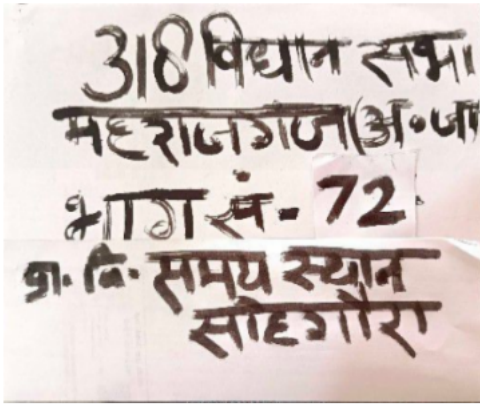 318 विधान सभा
महराजगंज(अ०जा
भाग सं- 72
प्रा. वि. समय स्थान
सोहगौरा